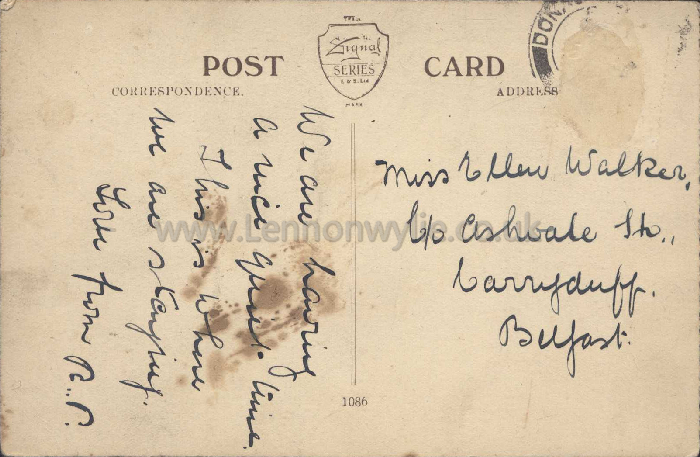 TRADE
Signal
SERIES
E & S. Ltd
MARK
POST CARD
CORRESPONDENCE.
ADDRESS
DON
We are having
a nice quiet time.
This is where
we are staying.
Love from R.P.
Miss Ellen Walker,
C/o Ashvale Ho.,
Carryduff.
Belfast.
1086
www.Lennonwylie.co.uk